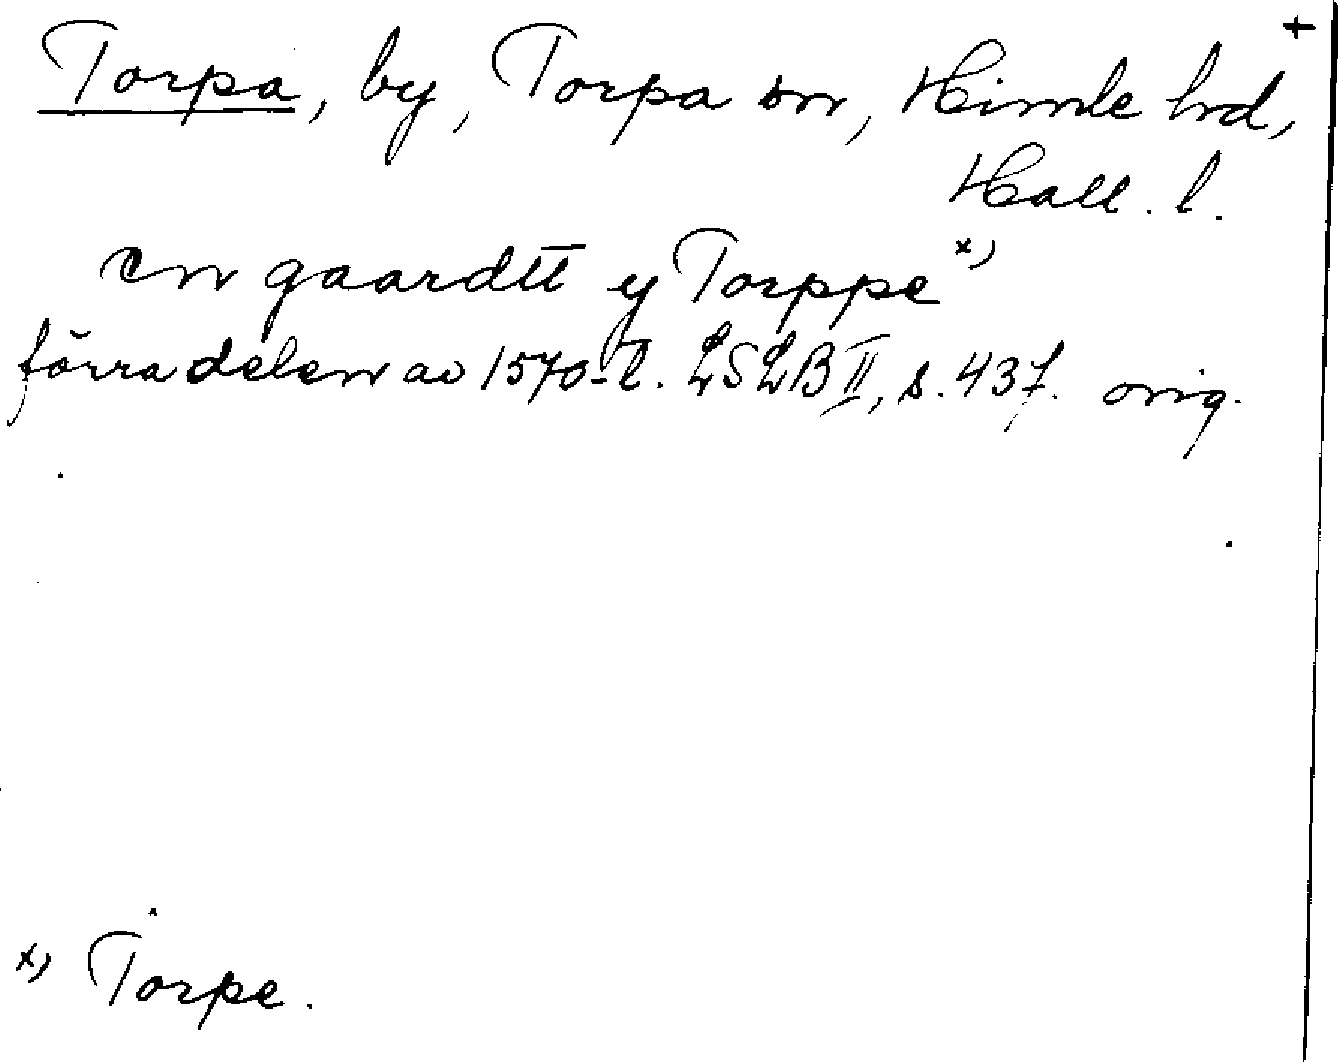 +
Torpa, by, Torpa sn, Himle hrd,
Hall. l.
en gaardtt y Torppe x)
förra delen av 1570-t. LSLB II, s. 437. orig.
x) Torpe.